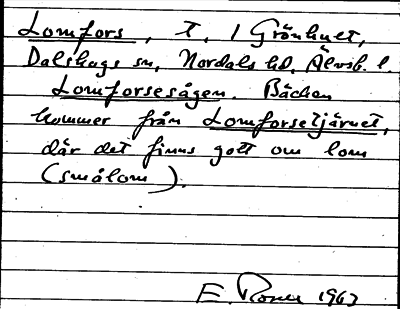 Lomfors, t. / Grönhult,
Dalskogs sn, Nordals hd, Älvsb. l.
Lomforsesågen. Bäcken
kommer från Lomforsetjärnet,
där det finns gott om lom
(smålom).
E. Rosell 1963